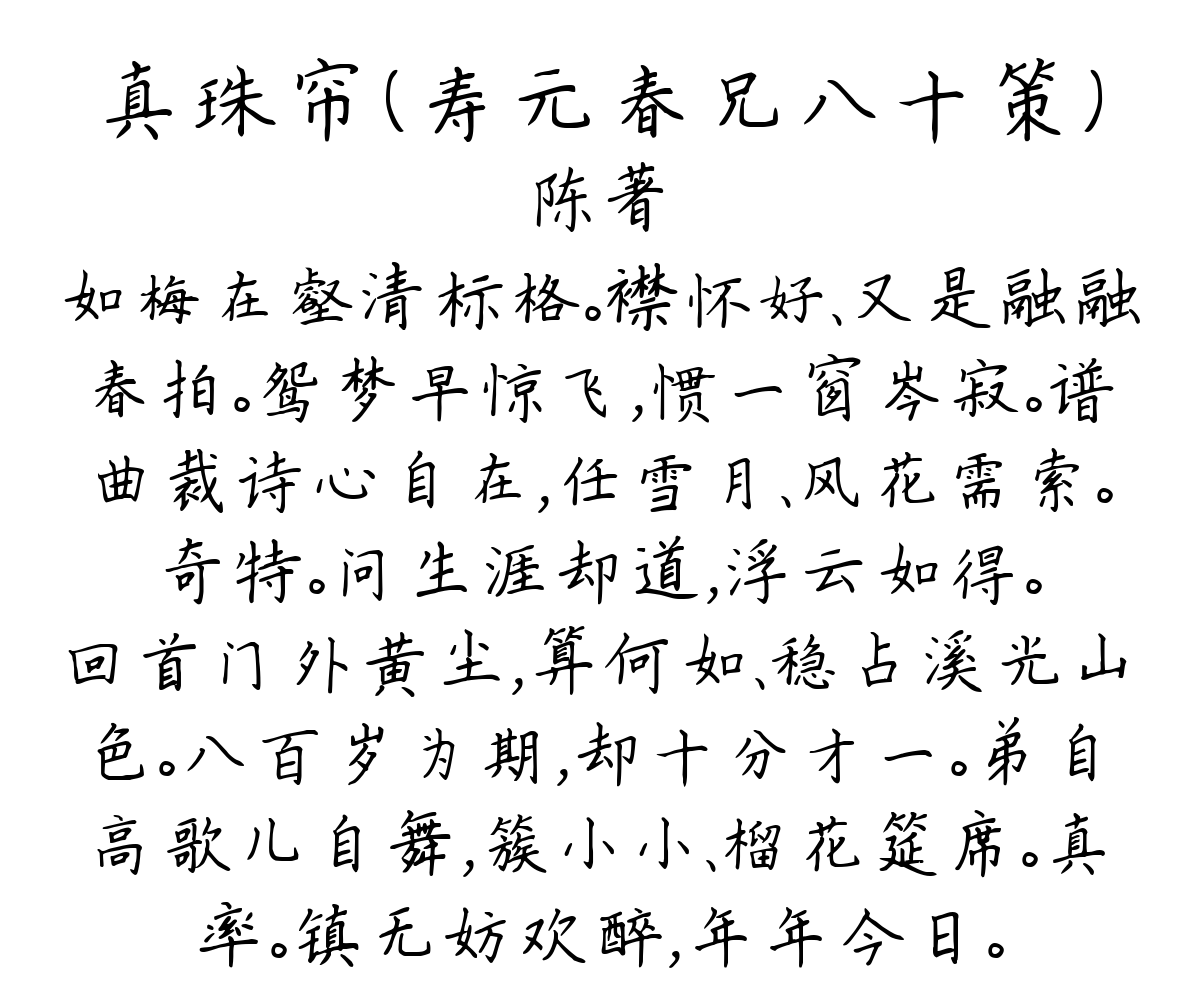 真珠帘(寿元春兄八十策)
陈著
如梅在壑清标格。襟怀好、又是融融
春拍。鸳梦早惊飞,惯一窗岑寂。谱
曲裁诗心自在,任雪月、风花需索。
奇特。问生涯却道,浮云如得。
回首门外黄尘,算何如、稳占溪光山
色。八百岁为期,却十分才一。弟自
高歌儿自舞,簇小小、榴花筵席。真
率。镇无妨欢醉,年年今日。